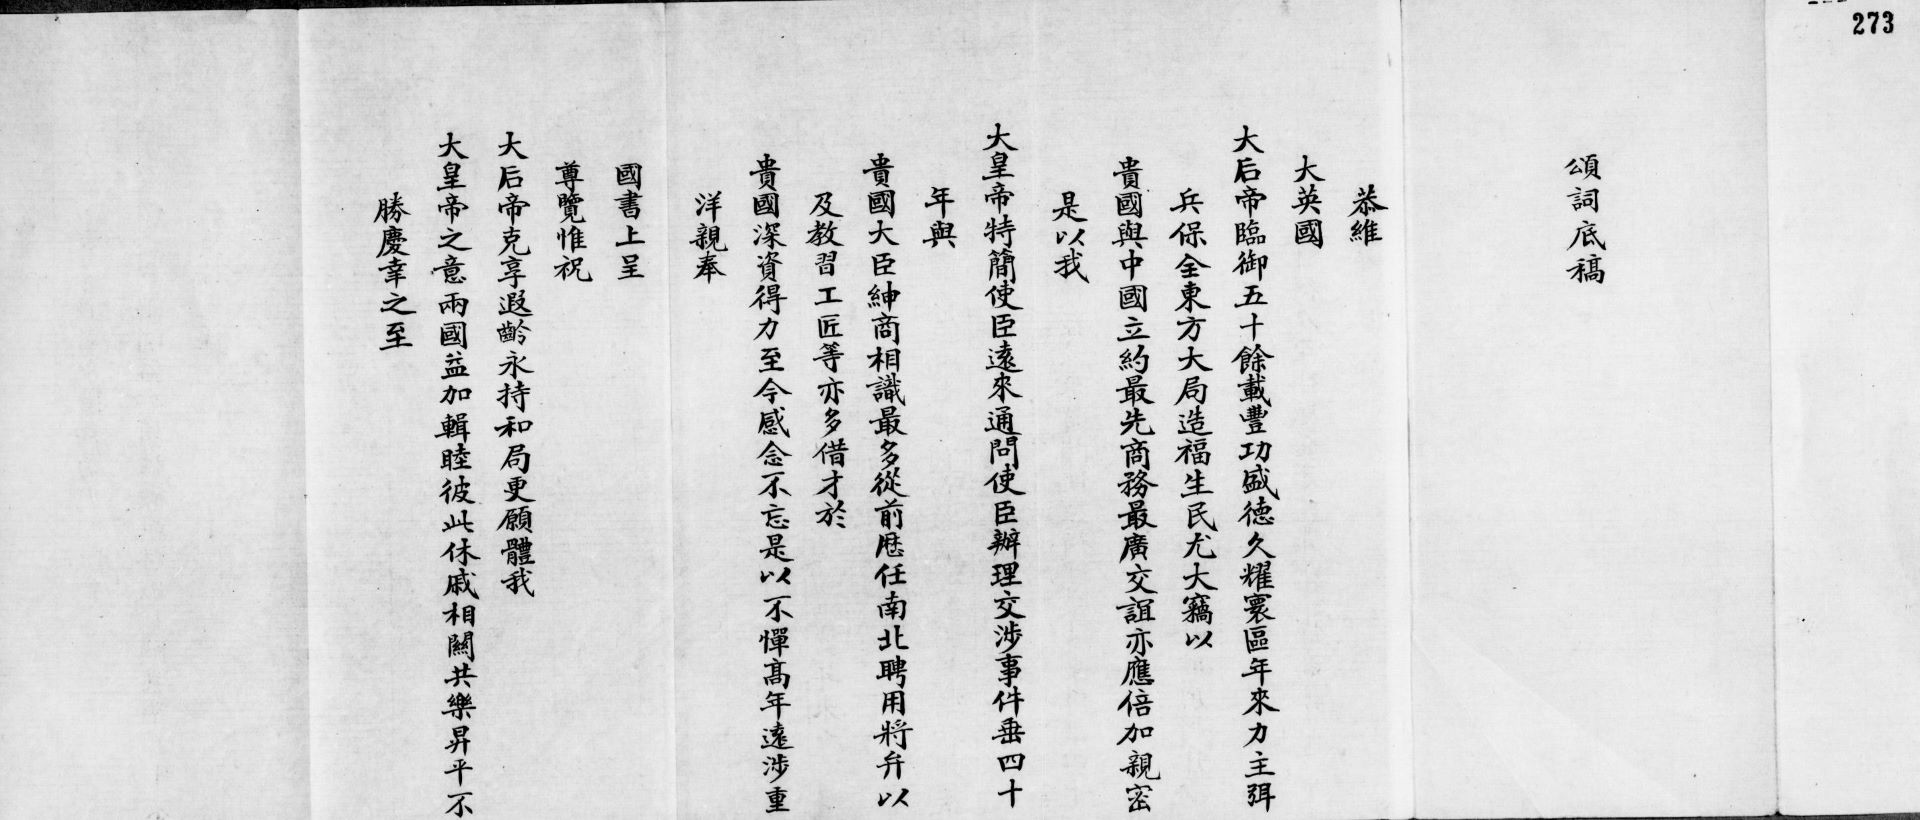 273
頌詞底稿
恭維
大英國
大后帝臨御五十餘載豐功盛德久耀寰區年來力主弭
兵保全東方大局造福生民尤大竊以
貴國與中國立約最先商務最廣交誼亦應倍加親密
是以我
大皇帝特簡使臣遠來通問使臣辦理交涉事件垂四十
年與
貴國大臣紳商相識最多從前歷任南北聘用將弁以
及教習工匠等亦多借才於
貴國深資得力至今感念不忘是以不憚高年遠涉重
洋親奉
國書上呈
尊覽惟祝
大后帝克享遐齡永持和局更願體我
大皇帝之意兩國益加輯睦彼此休戚相關共樂昇平不
勝慶幸之至